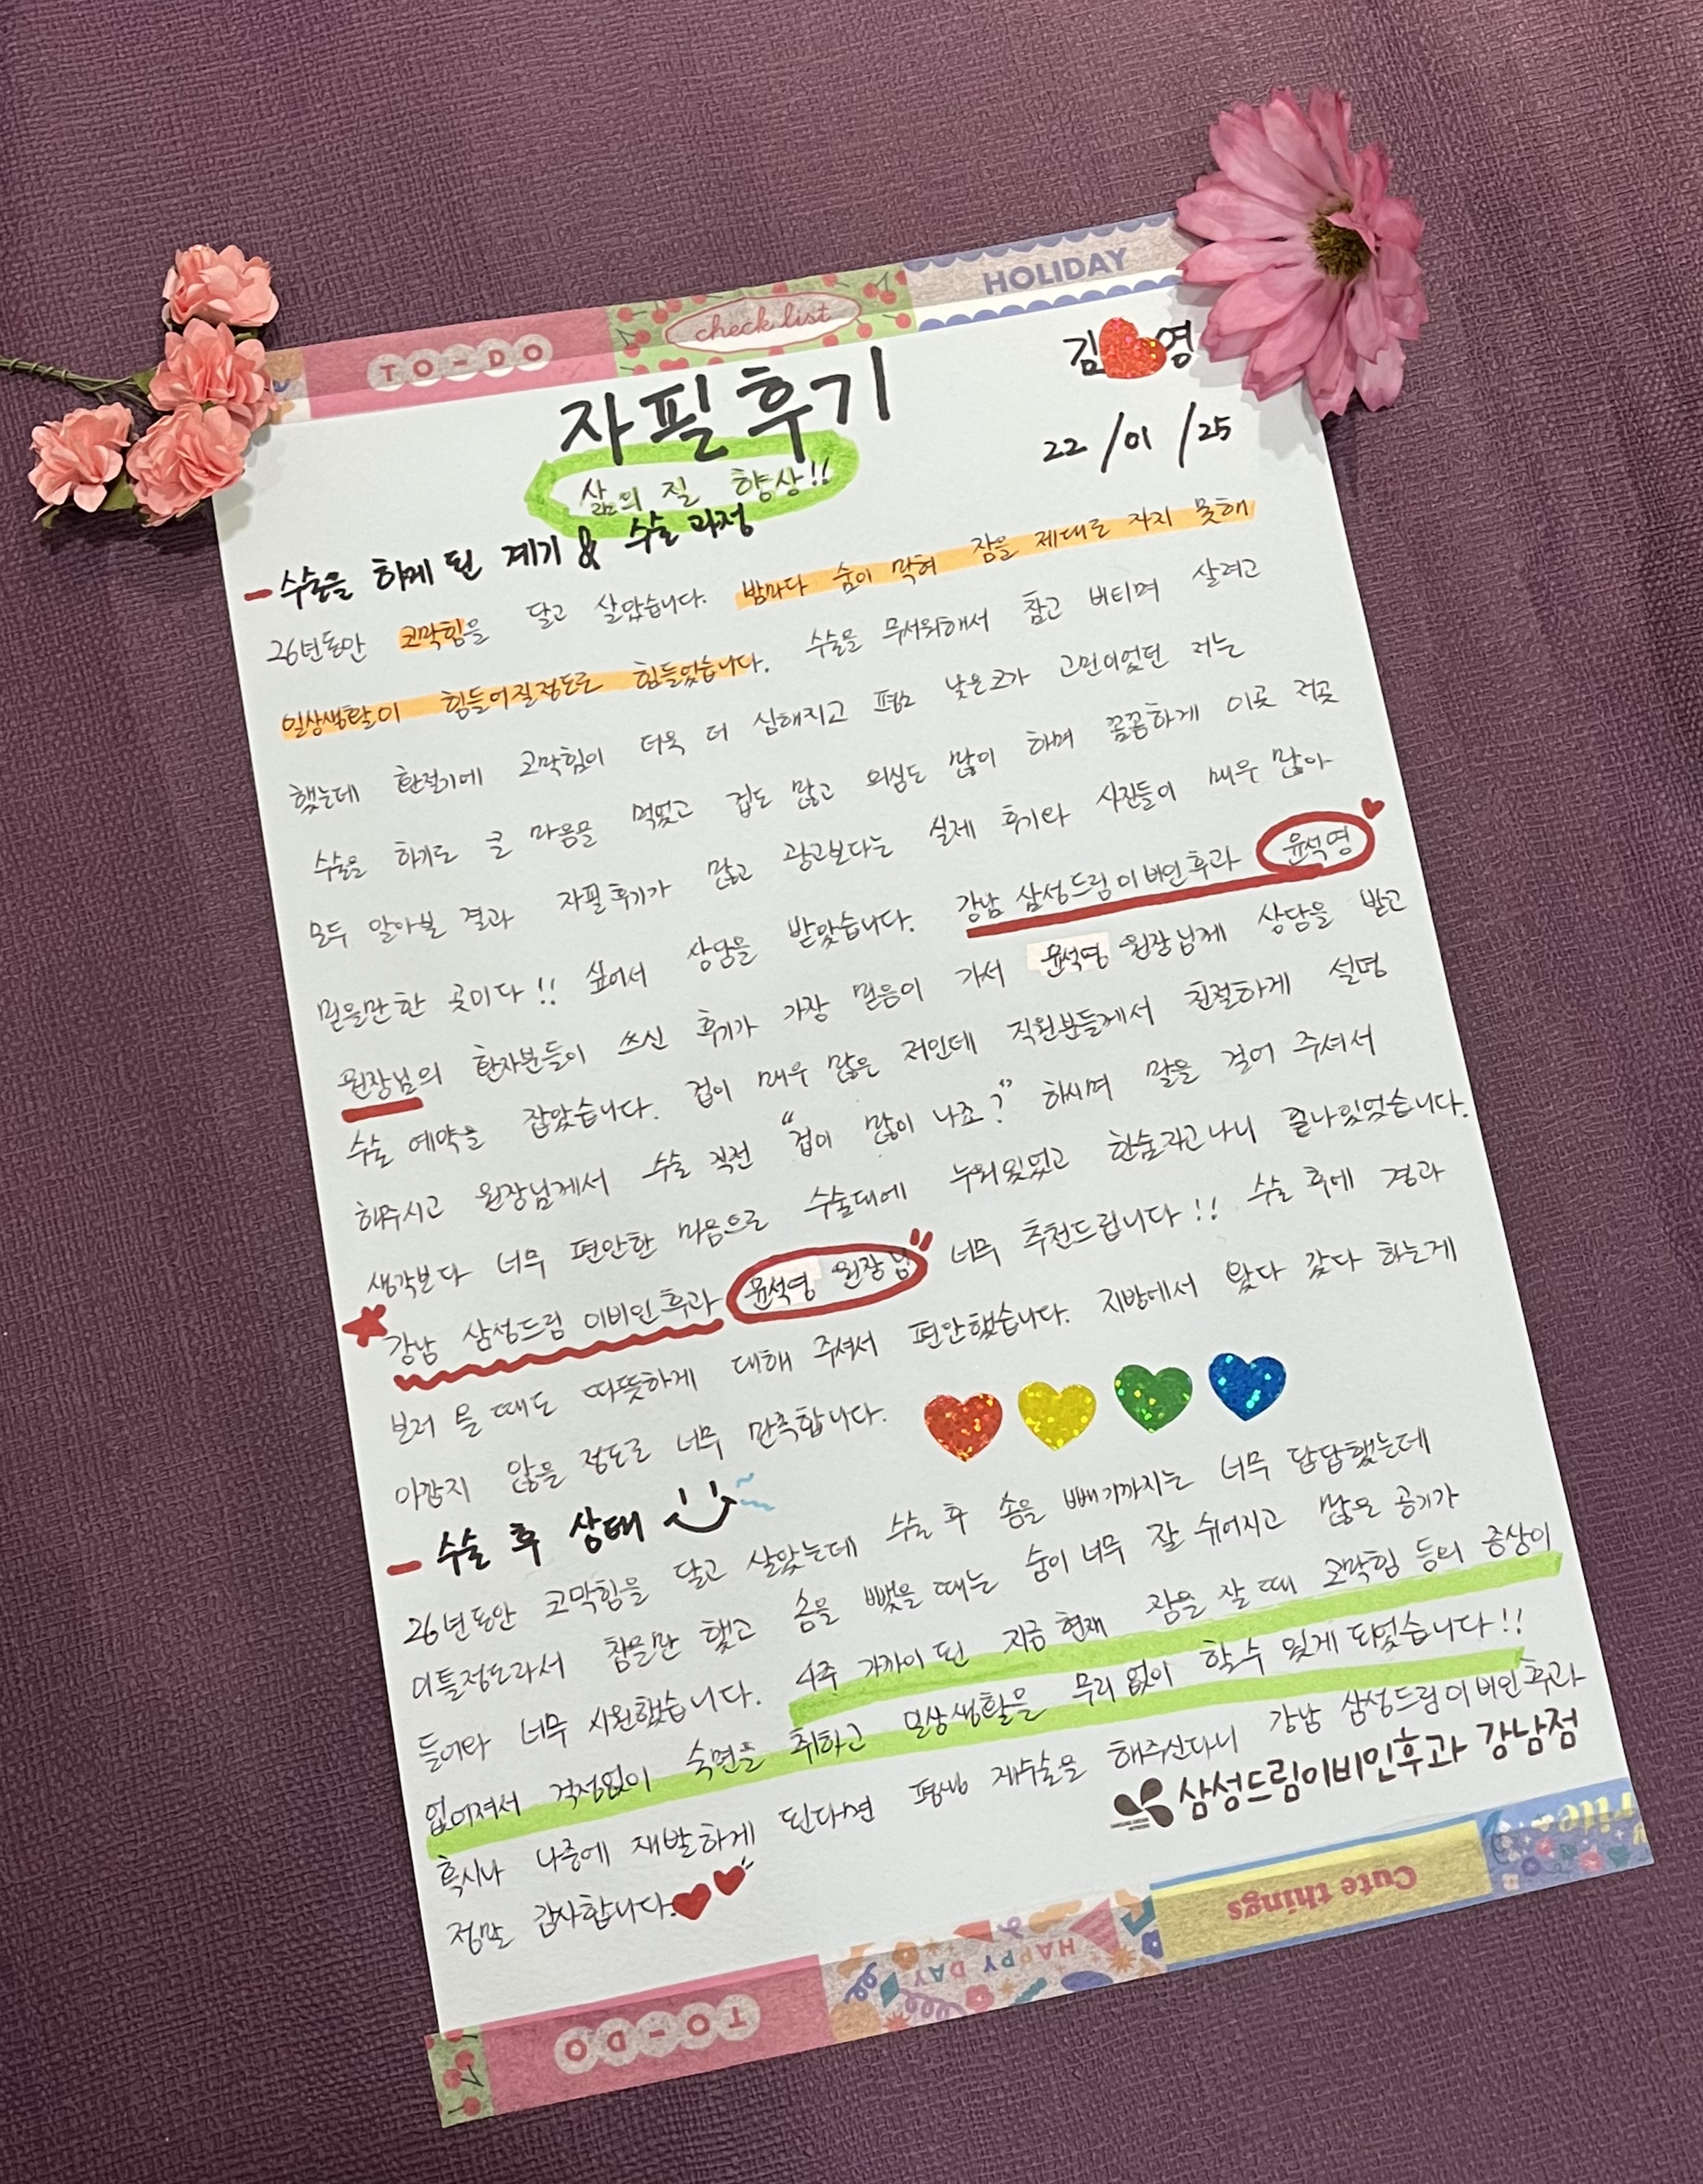 TO-DO
check list
HOLIDAY
김 영
자필후기
22/01/25
삶의 질 향상!!
- 수술을 하게 된 계기 & 수술과정
26년동안 코막힘을 달고 살았습니다. 밤마다 숨이 막혀 잠을 제대로 자지 못해
일상생활이 힘들어질정도로 힘들었습니다. 수술을 무서워해서 참고 버티며 살려고
했는데 환절기에 코막힘이 더욱 더 심해지고 평소 낮은코가 고민이었던 저는
수술을 하기로 큰 마음을 먹었고 겁도 많고 의심도 많이 하며 꼼꼼하게 이곳 저곳
모두 알아본 결과 자필후기가 많고 광고보다는 실제 후기와 사진들이 매우 많아
믿을만한 곳이다!! 싶어서 상담을 받았습니다. 강남 삼성드림이비인후과 윤석영
원장님의 환자분들이 쓰신 후기가 가장 믿음이 가서 윤석영 원장님께 상담을 받고
수술 예약을 잡았습니다. 겁이 매우 많은 저인데 직원분들께서 친절하게 설명
해주시고 원장님께서 수술 직전 "겁이 많이 나죠?" 하시며 말을 걸어 주셔서
생각보다 너무 편안한 마음으로 수술대에 누워있었고 한숨자고나니 끝나있었습니다.
강남 삼성드림 이비인후과 윤석영 원장님 너무 추천드립니다!! 수술 후에 경과
보러 올 때도 따뜻하게 대해 주셔서 편안했습니다. 지방에서 왔다 갔다 하는게
아깝지 않을 정도로 너무 만족합니다.
- 수술 후 상태
26년동안 코막힘을 달고 살았는데 수술 후 솜을 빼기까지는 너무 답답했는데
이틀정도라서 참을만 했고 솜을 뺐을 때는 숨이 너무 잘 쉬어지고 많은 공기가
들어와 너무 시원했습니다. 4주 가까이 된 지금 현재 잠을 잘 때 코막힘 등의 증상이
없어져서 걱정없이 숙면을 취하고 일상생활을 무리 없이 할수 있게 되었습니다!!
혹시나 나중에 재발하게 된다면 평생 재수술을 해주신다니 강남 삼성드림이비인후과
정말 감사합니다.
삼성드림이비인후과 강남점
Cute things
HAPPY DAY
TO-DO